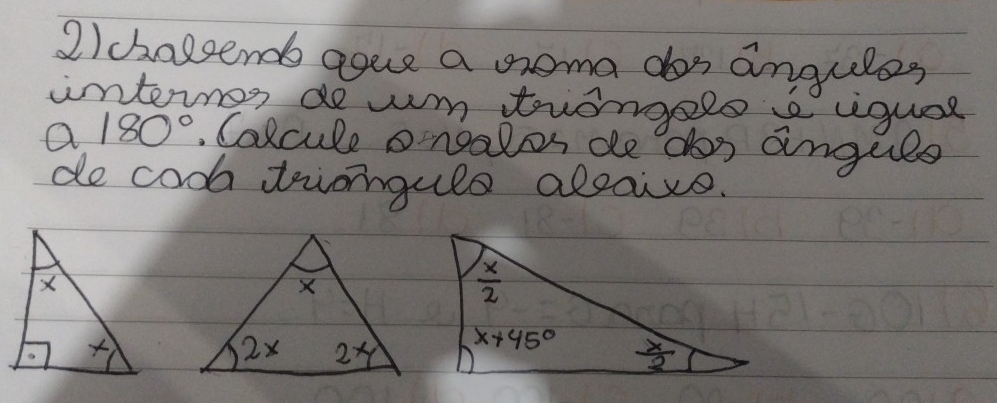 2) Sabendo que a soma dos ângulos
internos de um triângolo é igual
a 180°. Calcule o valor de dos ângulo
de cada triângulo abaixo.
x
x
x
2x
2x
x/2
x+45°
x/2